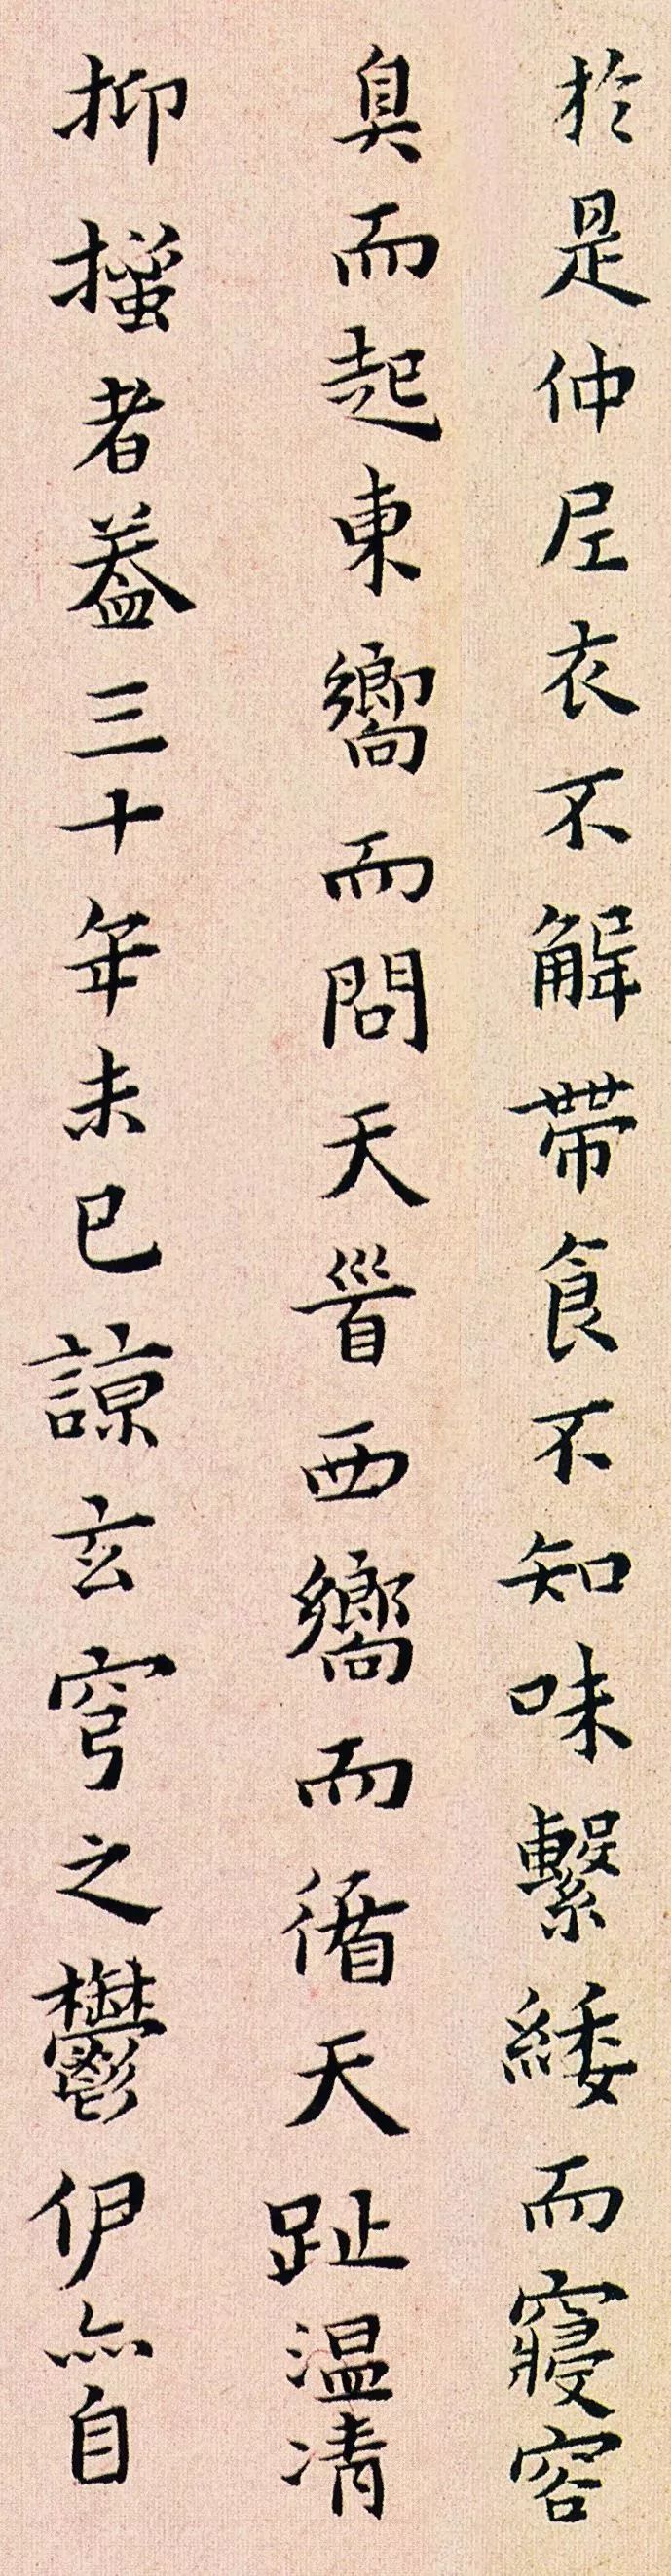 於是仲尼衣不解帶食不知味繫緌而寢容
臭而起東嚮而問天晉西嚮而循天趾温凊
抑搔者蓋三十年未已諒玄穹之鬱伊亦自